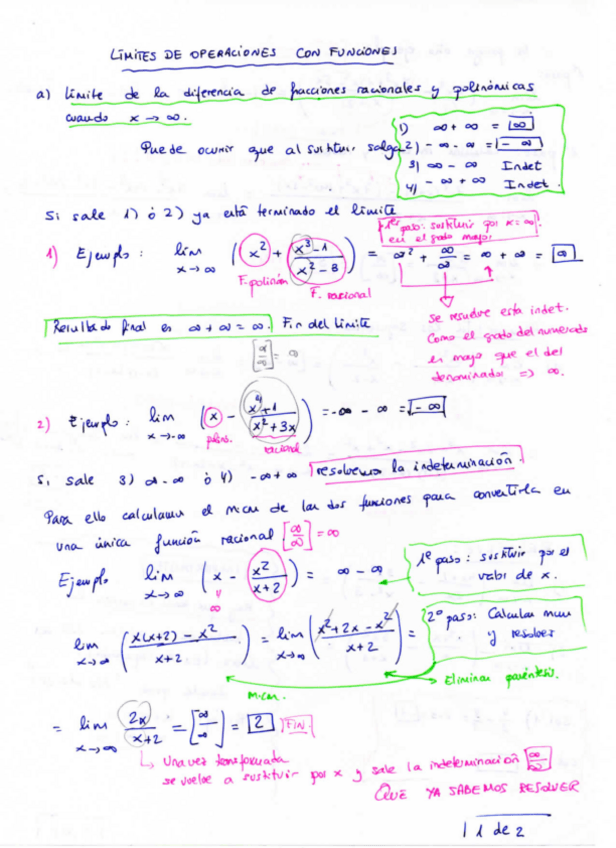 LÍMITES DE OPERACIONES CON FUNCIONES
a) límite de la diferencia de fracciones racionales y polinómicas
cuando x → ∞.
Puede ocurrir que al sustituir salga
1) ∞ + ∞ = ∞
2) - ∞ - ∞ = - ∞
3) ∞ - ∞ Indet
4) - ∞ + ∞ Indet.
Si sale 1) ó 2) ya está terminado el límite
1er paso: sustituir por x = ∞.
en el grado mayor
1) Ejemplo: lim x → ∞ (x² + (x³ - 1)/(x² - 8)) = ∞² + ∞/∞ = ∞ + ∞ = ∞
F. polinóm
F. racional
Resultado final es ∞ + ∞ = ∞. Fin del límite
Se resuelve esta indet.
Como el grado del numerado
es mayo que el del
denominador => ∞.
2) Ejemplo: lim x → -∞ (x - (x⁴ + 1)/(x² + 3x)) = -∞ - ∞ = - ∞
polin.
racional
Si sale 3) ∞ - ∞ ó 4) - ∞ + ∞ resolvemos la indeterminación.
Para ello calculamos el mcm de las dos funciones para convertirla en
una única función racional [∞/∞] = ∞
Ejemplo lim x → ∞ (x - x²/(x + 2)) = ∞ - ∞
∞
1º paso: sustituir por el
valor de x.
lim x → ∞ ((x(x+2) - x²)/(x + 2)) = lim x → ∞ ((x² + 2x - x²)/(x + 2)) =
2º paso: Calcular mcm
y resolver
m.c.m.
Eliminar paréntesis.
= lim x → ∞ 2x/(x + 2) = [∞/∞] = 2 FIN.
Una vez transformada
se vuelve a sustituir por x y sale la indeterminación ∞/∞
QUE YA SABEMOS RESOLVER
1 de 2